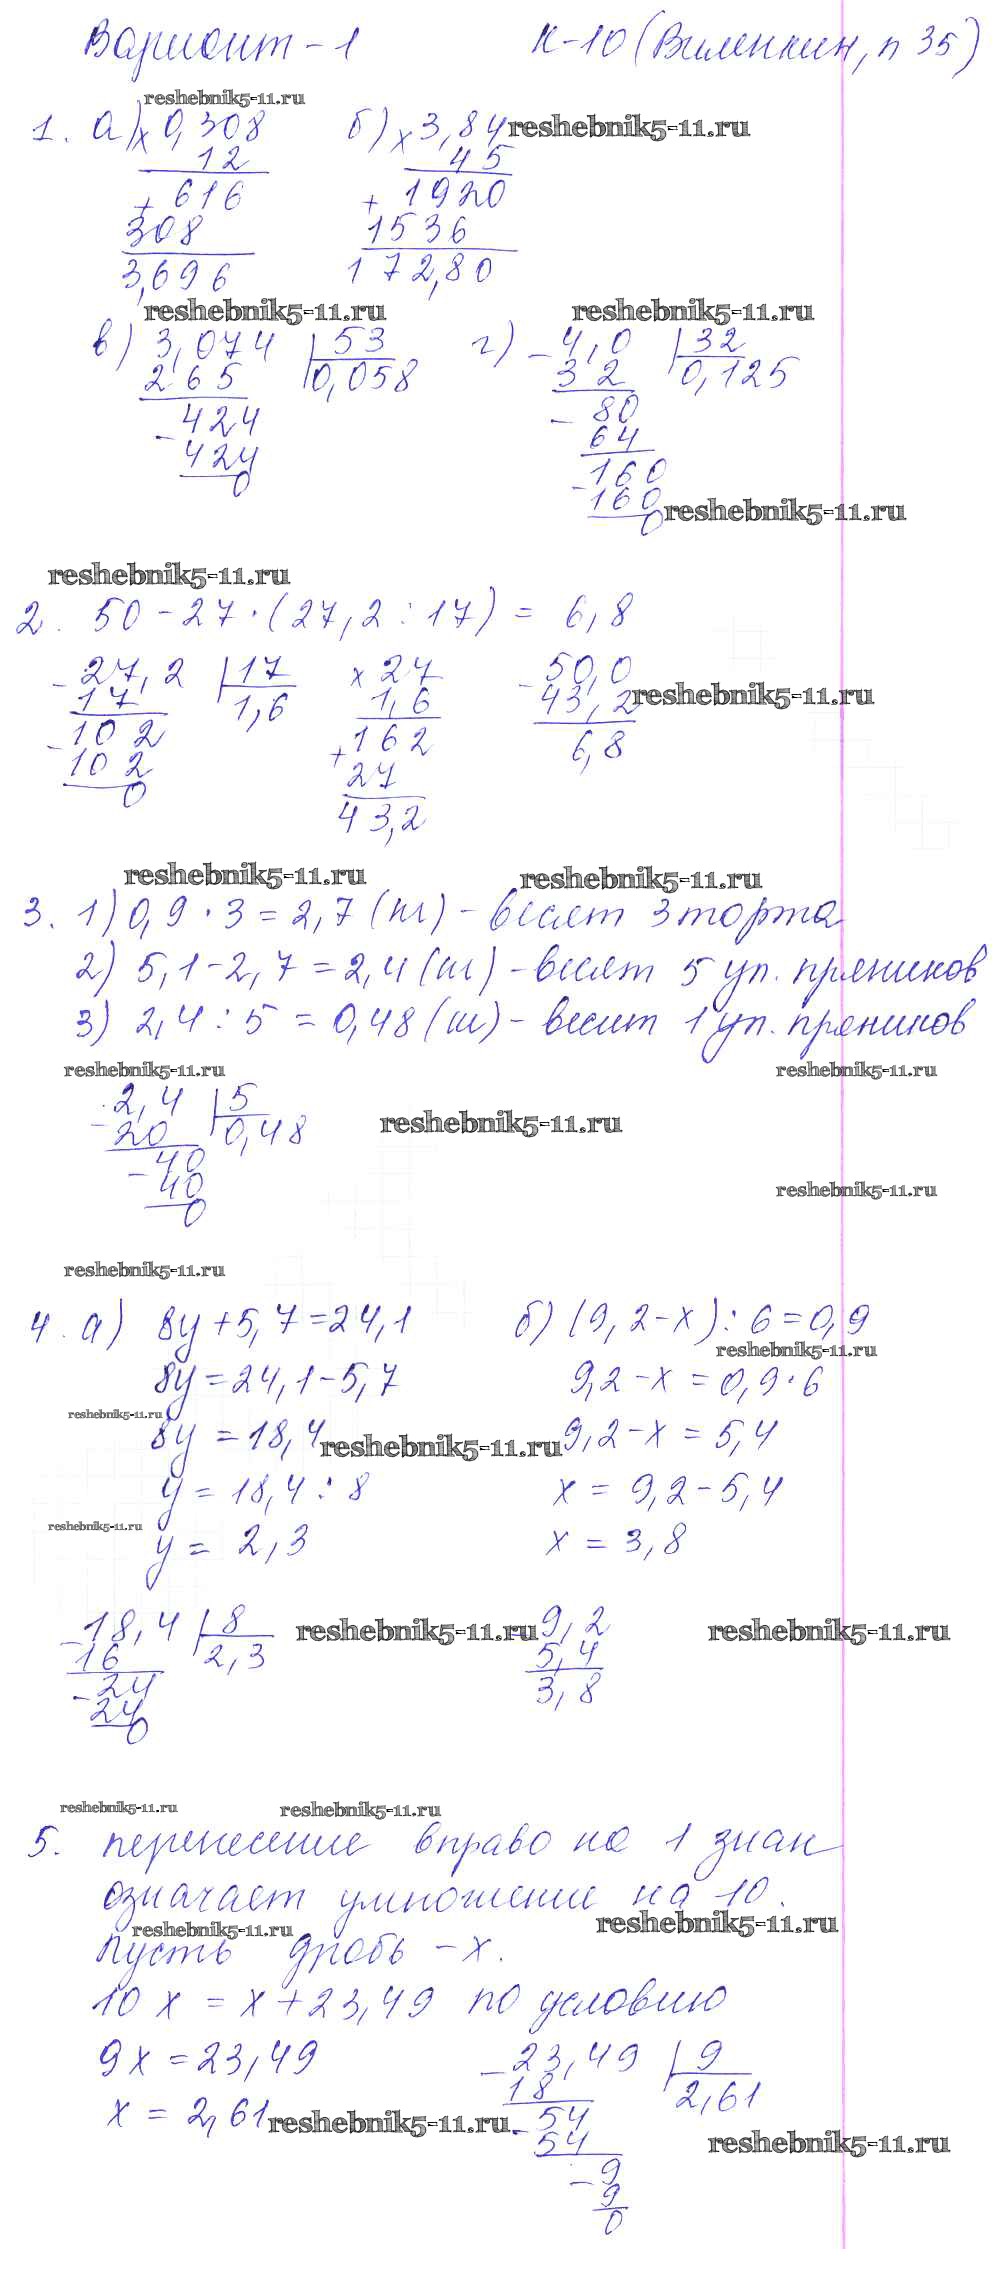 Вариант-1 К-10 (Виленкин, п 35)
reshebnik5-11.ru
1. а) × 0,308 б) × 3,84 reshebnik5-11.ru
12 45
+ 616 + 1920
308 1536
3,696 172,80
reshebnik5-11.ru reshebnik5-11.ru
в) 3,074 53 г) - 4,0 32
265 0,058 32 0,125
- 424 - 80
424 64
0 - 160
160 reshebnik5-11.ru
0
reshebnik5-11.ru
2. 50-27·(27,2:17) = 6,8
- 27,2 17 × 27 - 50,0
17 1,6 1,6 43,2 reshebnik5-11.ru
- 102 + 162 6,8
102 27
0 43,2
reshebnik5-11.ru reshebnik5-11.ru
3. 1) 0,9·3=2,7 (кг) - весят 3 торта
2) 5,1-2,7=2,4 (кг) - весят 5 уп. пряников
3) 2,4:5=0,48 (кг) - весит 1 уп. пряников
reshebnik5-11.ru reshebnik5-11.ru
- 2,4 5
20 0,48 reshebnik5-11.ru
- 40
40 reshebnik5-11.ru
0
reshebnik5-11.ru
4. а) 8y+5,7=24,1 б) (9,2-x):6=0,9
reshebnik5-11.ru
8y=24,1-5,7 9,2-x=0,9·6
reshebnik5-11.ru
8y=18,4 reshebnik5-11.ru 9,2-x=5,4
y=18,4:8 x=9,2-5,4
reshebnik5-11.ru
y=2,3 x=3,8
- 18,4 8 reshebnik5-11.ru - 9,2 reshebnik5-11.ru
16 2,3 5,4
- 24 3,8
24
0
reshebnik5-11.ru reshebnik5-11.ru
5. перенесение вправо на 1 знак
означает умножение на 10.
reshebnik5-11.ru reshebnik5-11.ru
Пусть дробь - x.
10x = x+23,49 по условию
9x=23,49 - 23,49 9
x=2,61 reshebnik5-11.ru 18 2,61
- 54
54 reshebnik5-11.ru
- 9
9
0